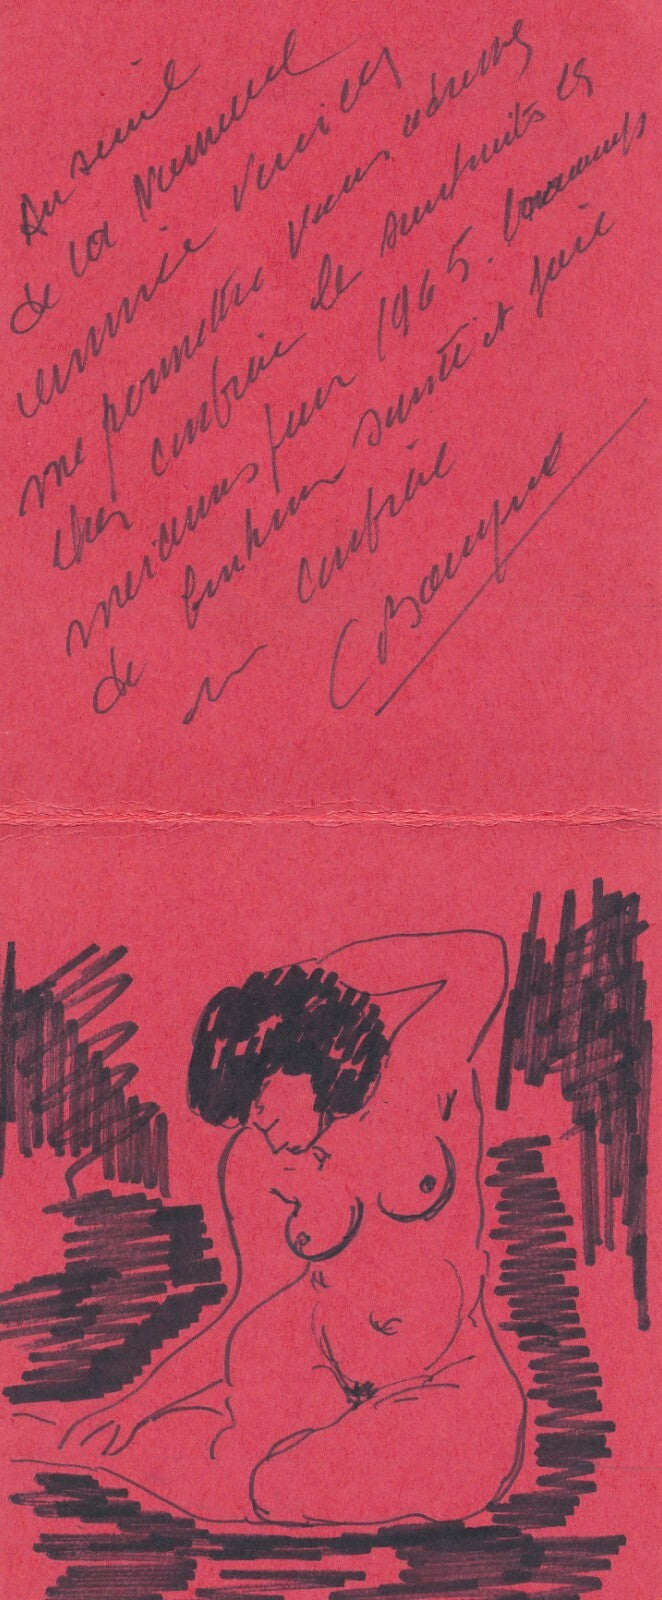 Au seuil
de la nouvelle
année veuillez
me permettre vous adresser
cher confrère les souhaits les
meilleurs pour 1965. Beaucoup
de bonheur santé et joie
en confrère